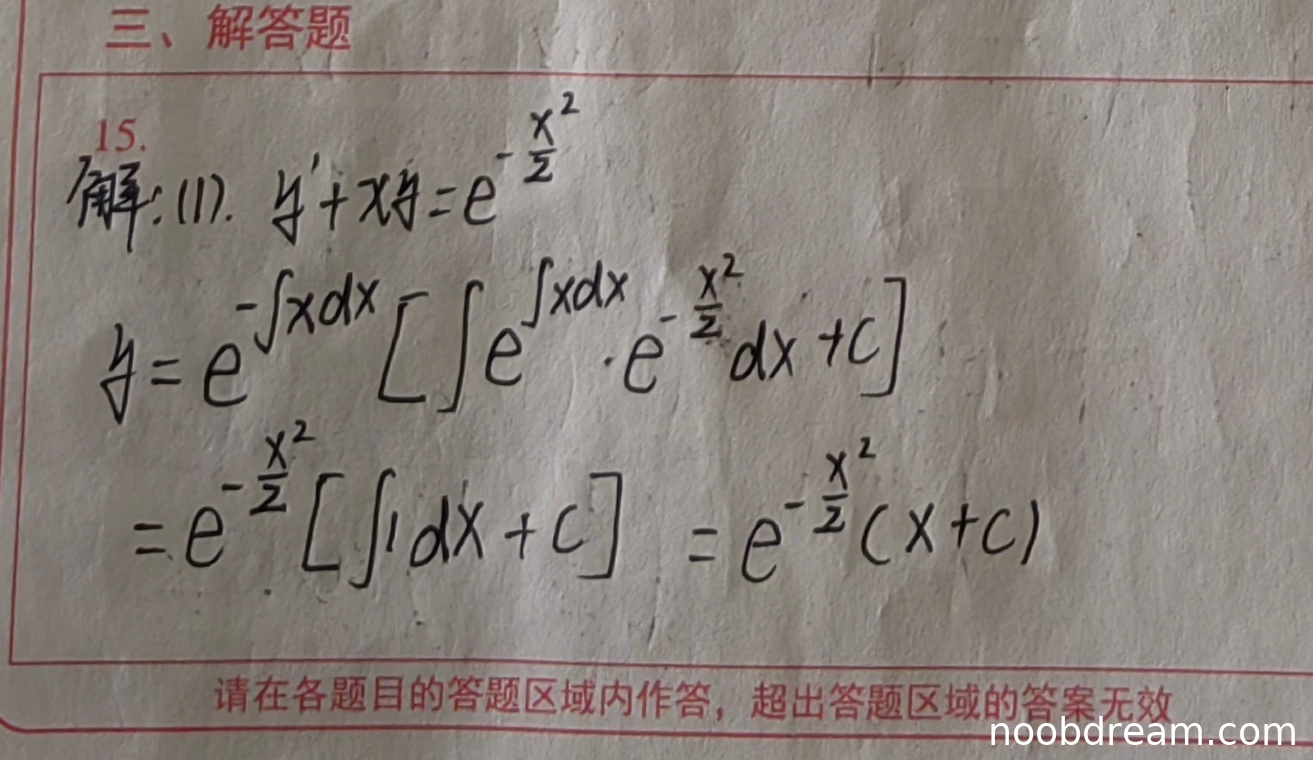 三、解答题
15.
解:(1). y'+xy=e^{-\frac{x^2}{2}}
y=e^{-∫xdx}[∫e^{∫xdx}·e^{-\frac{x^2}{2}}dx+C]
=e^{-\frac{x^2}{2}}[∫1dx+C] =e^{-\frac{x^2}{2}}(x+C)
请在各题目的答题区域内作答，超出答题区域的答案无效
noobdream.com